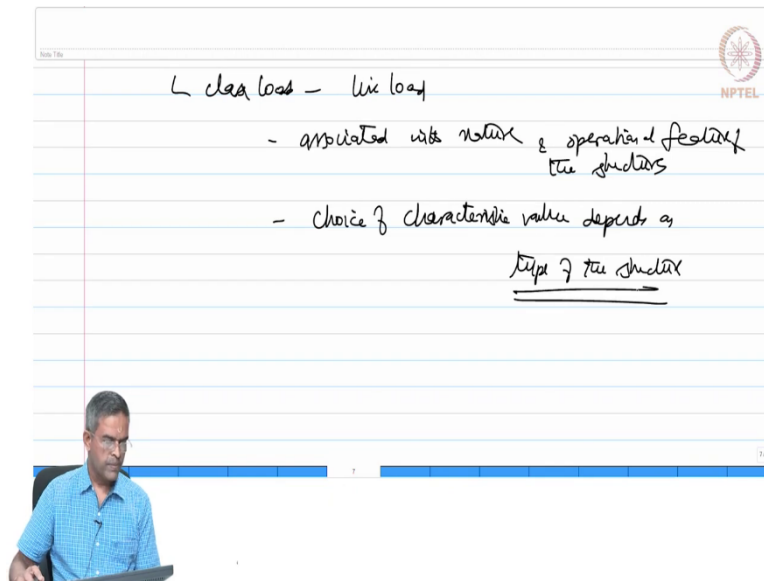 Note Title
NPTEL
L class load - live load
- associated with nature & operational feature of
the structures
- choice of characteristic value depends on
type of the structure
7